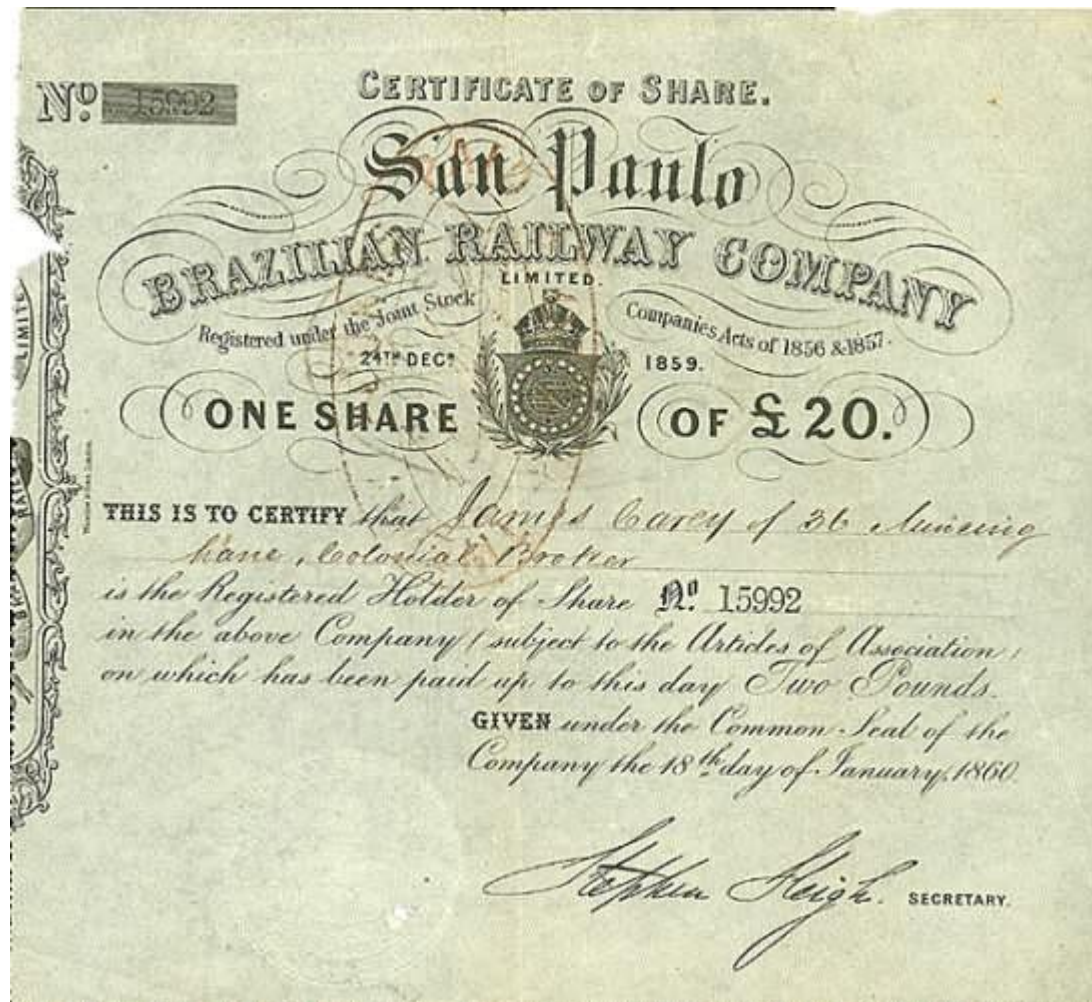 Nº 15992
CERTIFICATE OF SHARE.
San Paulo
BRAZILIAN RAILWAY COMPANY
LIMITED.
Registered under the Joint Stock Companies Acts of 1856 & 1857.
24TH DECR 1859.
ONE SHARE OF £20.
THIS IS TO CERTIFY that James Carey of 36 Mincing
Lane, Colonial Broker
is the Registered Holder of Share Nº 15992
in the above Company (subject to the Articles of Association)
on which has been paid up to this day Two Pounds.
GIVEN under the Common Seal of the
Company the 18th day of January, 1860.
Stephen Sleigh. SECRETARY.
LIMITE